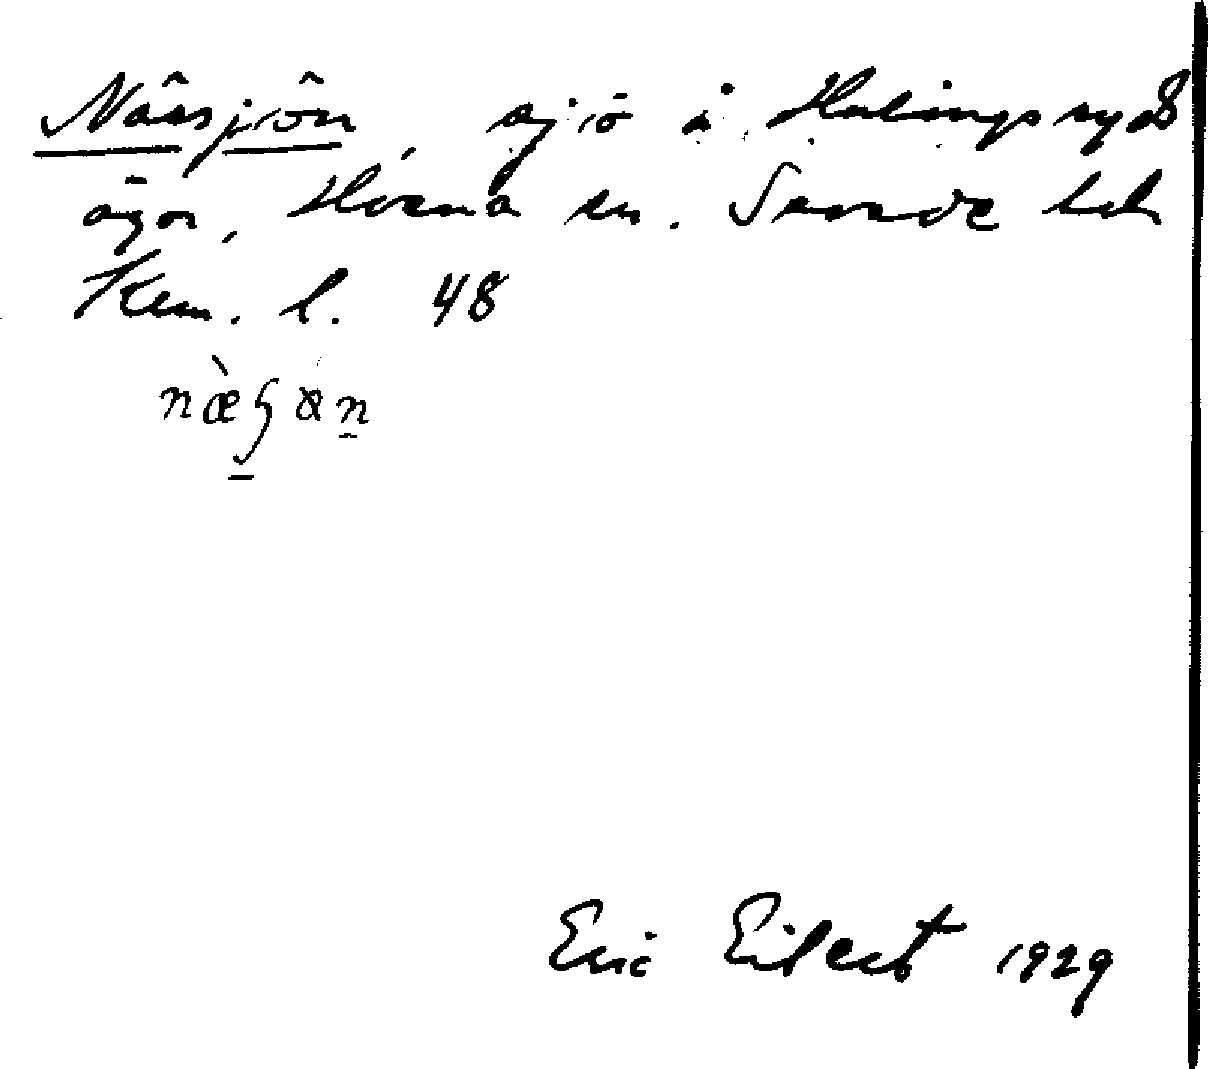 Närsjön, sjö å Hulingsryds
ägor, Horna sn. Sevede hd
Kem. l. 48
næ̀ʂøn
Eric Eilert 1929